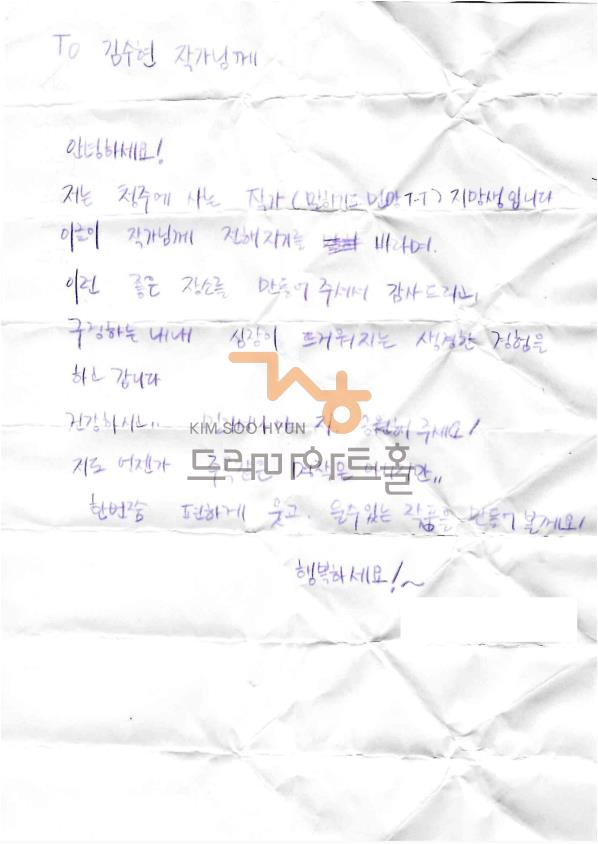 To 김수현 작가님께
안녕하세요!
저는 청주에 사는 작가(말하기도 민망T-T) 지망생입니다
이글이 작가님께 전해지기를 바라며.
이런 좋은 장소를 만들어 주셔서 감사드리고,
구경하는 내내 심장이 뜨거워지는 생경한 경험을
하고 갑니다
건강하시고.. 응원해 주세요!
KIM SOO HYUN
드라마아트홀
저도 언젠가
한번쯤 편하게 웃고. 볼수있는 작품을 만들어 볼게요!
행복하세요!~